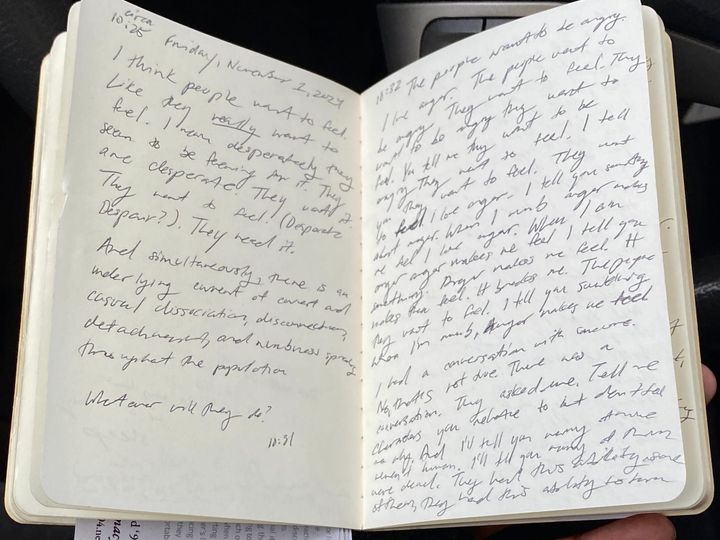 circa
10:25
Friday, November 1, 2024
I think people want to feel.
Like they really want to
feel. I mean desperately they
seem to be feening for it. They
are desperate. They want it.
They want to feel. (Desperate
Despair?). They need it.
And simultaneously, there is an
underlying current of covert and
casual dissociation, disconnection,
detachment, and numbness spreading
throughout the population
Whatever will they do?
10:31
10:32 The people want to be angry.
I love anger. The people want to
be angry. They want to feel. They
want to be angry they want to
feel. You tell me they want to be
angry they want to feel. I tell
you they want to feel. They want
to feel I love anger. I tell you something
about anger. When I numb anger makes
me feel I love anger. When I am
anger anger makes me feel I tell you
something. Anger makes me feel. It
makes them feel. It breaks me. The people
they want to feel. I tell you something
when I'm numb, anger makes me feel
I had a conversation with someone.
No, that's not true. There was a
conversation. They asked me. Tell me
characters you relate to but identified
as why. And I'll tell you many
weren't human. I'll tell you many of them
were dead. They had this ability
of them, they had this ability to turn